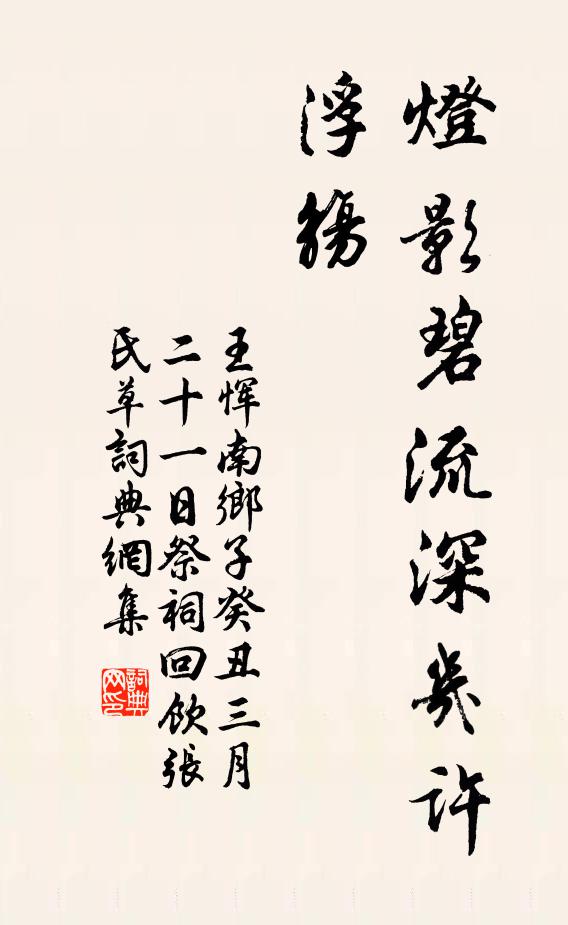 燈影碧流深幾許
浮觴
王惲南鄉子癸丑三月
二十一日祭祠回飲張
氏草詞典網集
詞典
网印